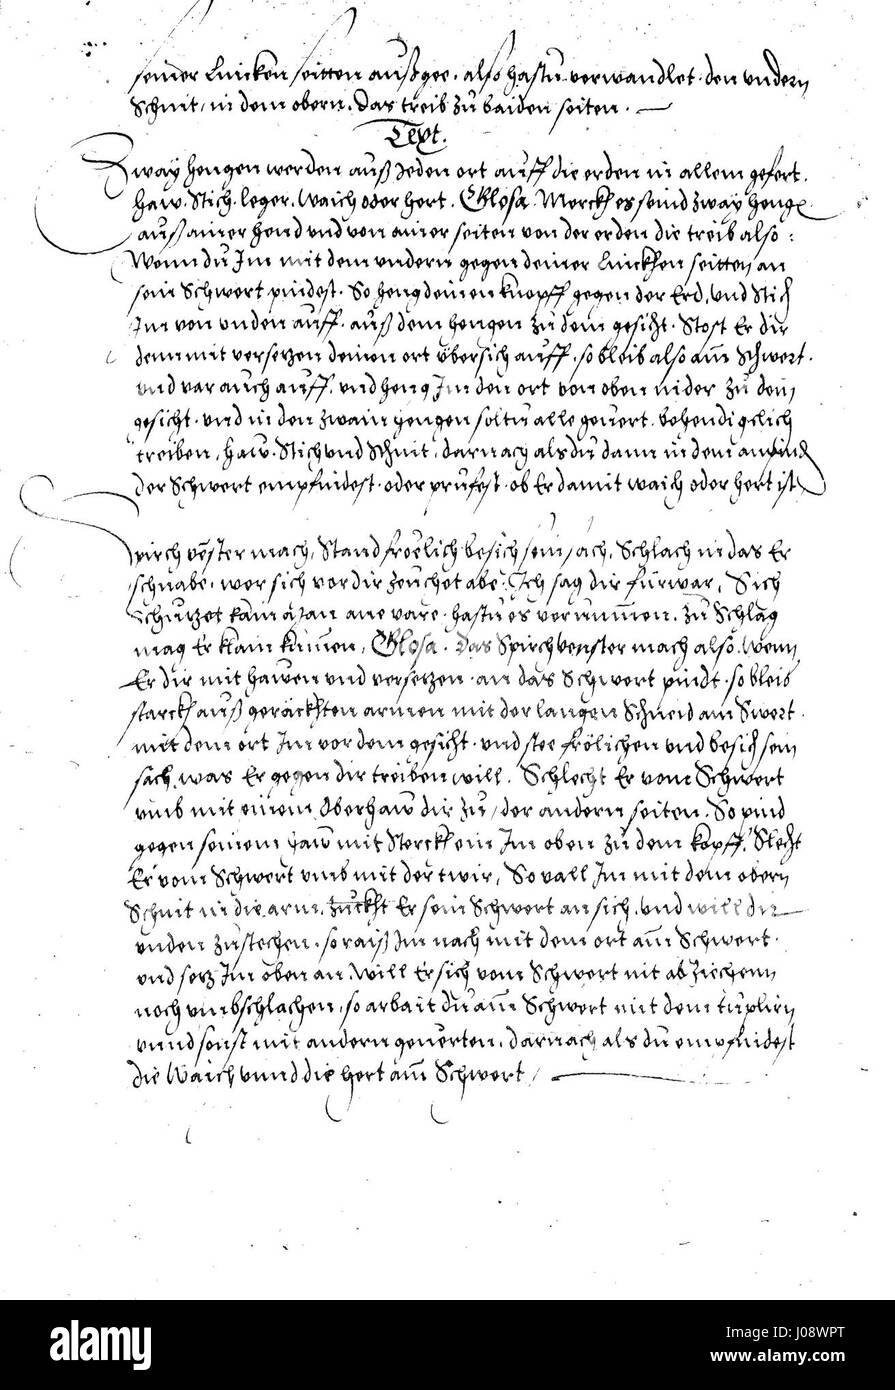 seiner Lincken seitten außgee. also hastu verwandlet. den undern
Schnit, in dem obern. Das treib zu baiden seiten.
Text.
Zway hengen werden auß Jeden ort auff die erden in allem gefert.
haw. Stich. leger. Waich oder hert. Glosa. Merckh es seind zway heng
auß ainer hend und von ainer seiten von der erden die treib also:
Wenn du Im mit dem undern gegen deiner Linckhen seitten an
sein Schwert pindest. So heng deinen knopff gegen der Erd, und Stich
Im von unden auff. auß dem hengen zu dem gesicht. Stost Er dir
denn mit versetzen deinen ort übersich auff. so bleib also am Schwert.
und var auch auff. und heng Im den ort von oben nider zu dem
gesicht. und in den zwain hengen soltu alle gevert. behendigclich
treiben, haw. Stich und Schnit, darnach als du dann in dem anpind
der Schwert empfindest. oder prüfest. ob Er damit waich oder hert ist
Sprich vënster mach, Stand froelich besich sein sach, Schlach in das Er
schnabe. wer sich vor dir zeuchet abe. Ich sag dir fürwar, Sich
Schützet kain man ane vare. hastu es vernummen. zu Schlag
mag Er klain kummen, Glosa. Das Sprichvenster mach also. Wenn
Er dir mit hawen und versetzen. an das Schwert pindt. so bleib
starckh auß geräckhten armen mit der langen Schneid am Swert.
mit dem ort Im vor dem gesicht. und stee frölichen und besich sein
sach, was Er gegen dir treiben will. Schlecht Er vom Schwert
umb mit einem Oberhaw dir zu, der andern seiten. So pind
gegen seinem haw mit Sterckh ein Im oben zu dem kopff. Slecht
Er vom Schwert umb mit der twir, So vall Im mit dem obern
Schnit in die arm. zuckht Er sein Schwert an sich. und will dir
unden zustechen. so raiß Im nach mit dem ort am Schwert.
und setz Im oben an. Will Er sich vom Schwert nit abziehenn
noch umbschlachen, so arbait du am Schwert mit dem tuplirn
unnd sonst mit andern geverten, darnach als du empfindest
die Waich unnd die hert am Schwert /
alamy
Image ID: J08WPT
www.alamy.com